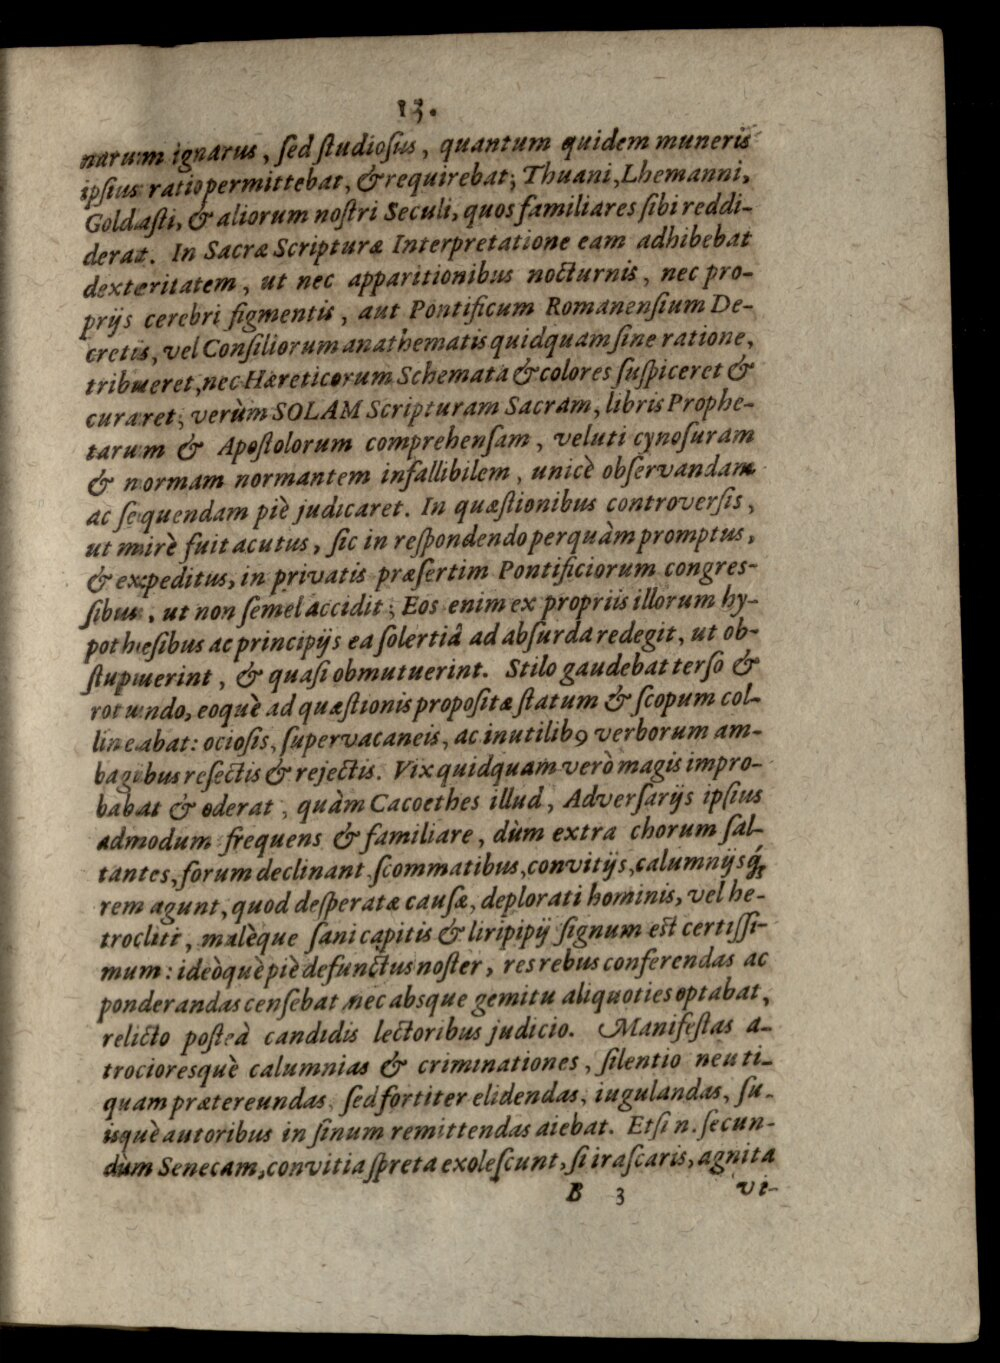 13.
narum ignarus, ſed ſtudioſus, quantum quidem muneris
ipſius ratio permittebat, & requirebat; Thuani, Lhemanni,
Goldaſti, & aliorum noſtri Seculi, quos familiares ſibi reddi-
derat. In Sacræ Scripturæ Interpretatione eam adhibebat
dexteritatem, ut nec apparitionibus nocturnis, nec pro-
prijs cerebri figmentis, aut Pontificum Romanenſium De-
cretis, vel Conſiliorum anathematis quidquam ſine ratione,
tribueret, nec Hæreticorum Schemata & colores ſuſpiceret &
curaret; verùm SOLAM Scripturam Sacram, libris Prophe-
tarum & Apoſtolorum comprehenſam, veluti cynoſuram
& normam normantem infallibilem, unicè obſervandam
ac ſequendam piè judicaret. In quæſtionibus controverſis,
ut mirè fuit acutus, ſic in reſpondendo perquàm promptus,
& expeditus, in privatis præſertim Pontificiorum congres-
ſibus, ut non ſemel accidit; Eos enim ex propriis illorum hy-
potheſibus ac principijs ea ſolertiâ ad abſurda redegit, ut ob-
ſtupuerint, & quaſi obmutuerint. Stilo gaudebat terſo &
rotundo, eoquè ad quæſtionis propoſitæ ſtatum & ſcopum col-
lineabat: ocioſis, ſupervacaneis, ac inutilibꝰ verborum am-
bagibus reſectis & rejectis. Vix quidquam verò magis impro-
babat & oderat, quàm Cacoethes illud, Adverſarijs ipſius
admodum frequens & familiare, dùm extra chorum ſal-
tantes, forum declinant ſcommatibus, convitijs, calumnijsq́;
rem agunt, quod deſperatæ cauſæ, deplorati hominis, vel he-
trocliti, malèque ſani capitis & liripipij ſignum est certiſſi-
mum: ideòquè piè defunctus noſter, res rebus conferendas ac
ponderandas cenſebat nec absque gemitu aliquoties optabat,
relicto poſteà candidis lectoribus judicio. Manifeſtas a-
trocioresquè calumnias & criminationes, ſilentio neuti-
quam prætereundas, ſed fortiter elidendas, iugulandas, ſu-
isquè autoribus in ſinum remittendas aiebat. Etſi n. ſecun-
dùm Senecam, convitia ſpreta exoleſcunt, ſi iraſcaris, agnita
B 3 vi-